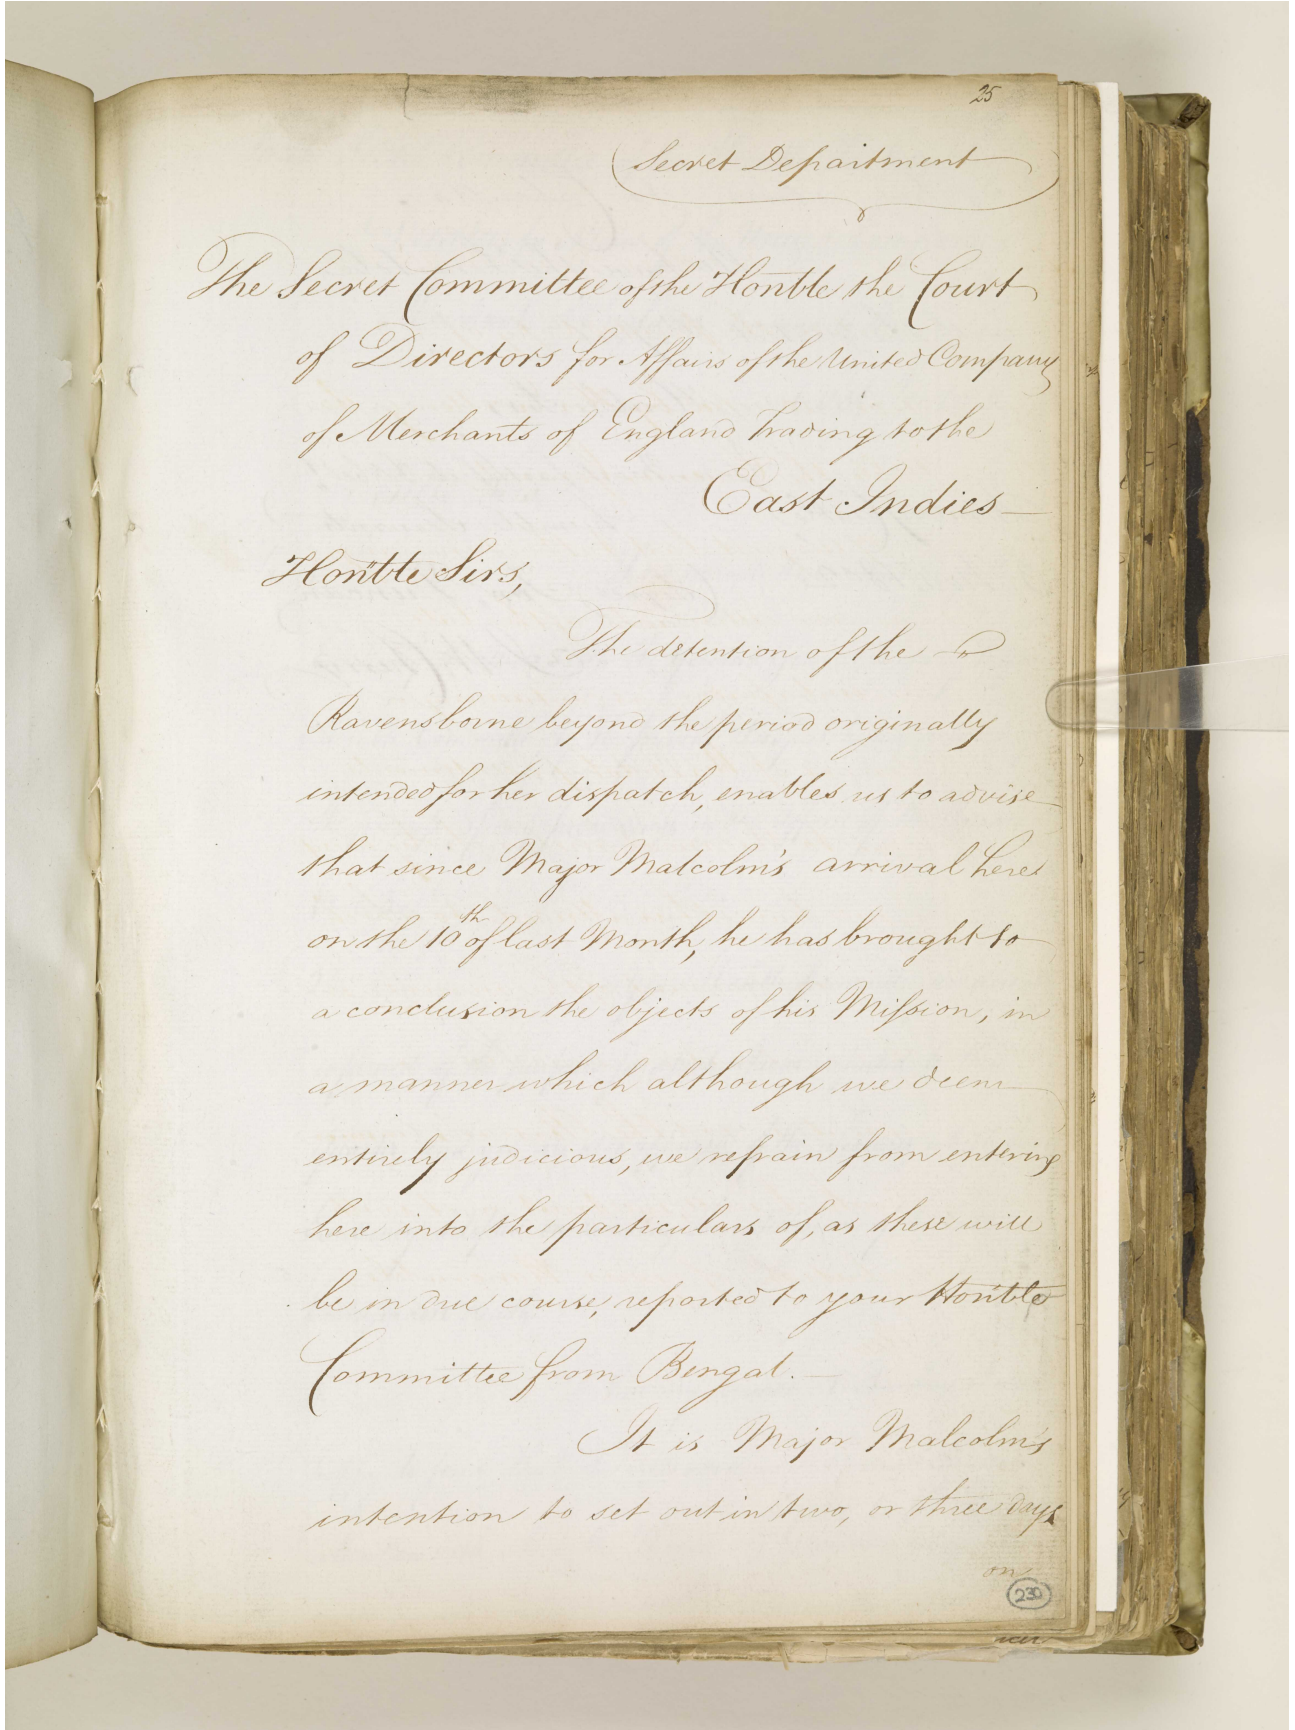 25
Secret Department
The Secret Committee of the Hon'ble the Court
of Directors for Affairs of the United Company
of Merchants of England Trading to the
East Indies
Hon'ble Sirs,
The detention of the
Ravensborne beyond the period originally
intended for her dispatch, enables us to advise
that since Major Malcolm's arrival here
on the 10th of last Month, he has brought to
a conclusion the objects of his Mission, in
a manner which although we deem
entirely judicious, we refrain from entering
here into the particulars of, as these will
be in due course, reported to your Hon'ble
Committee from Bengal. —
It is Major Malcolm's
intention to set out in two, or three days
on
230